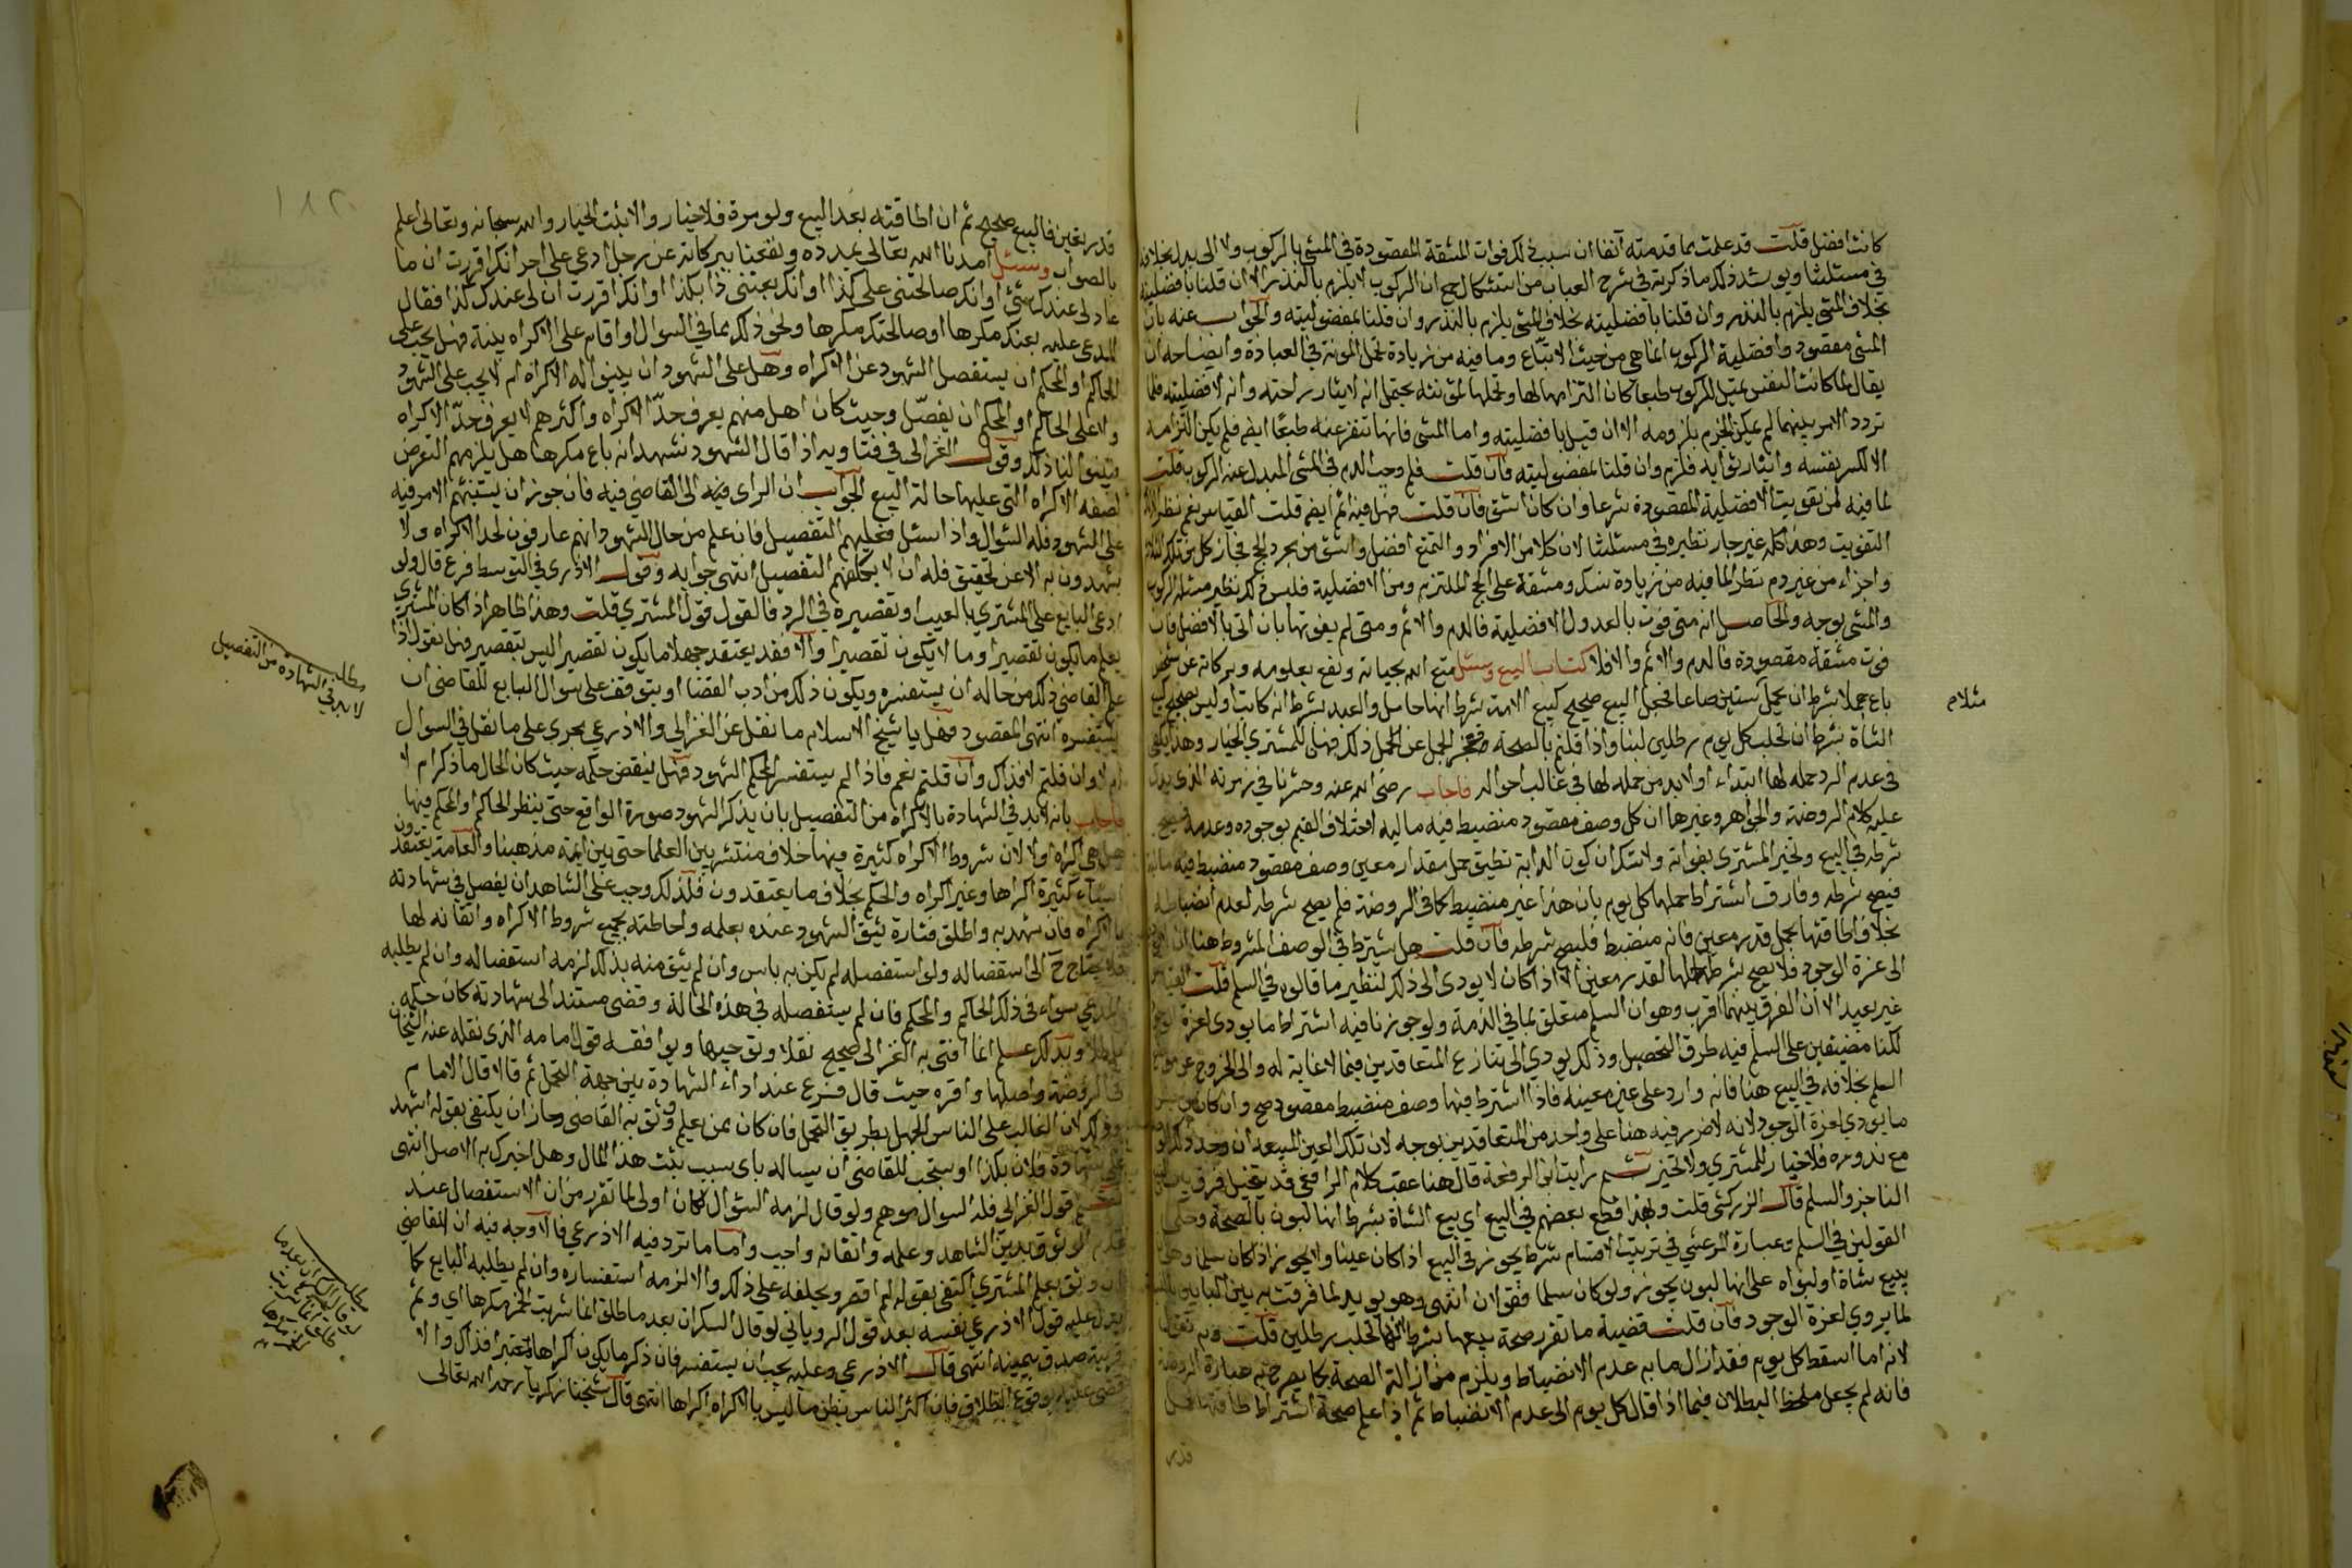 كانت افضل قلت قد علمت بما قدمته آنفا ان سبب ذلك فوات المشقة المقصودة في المشي بالركوب ولا الى بدل بخلافه
في مسئلتنا ويرشد ذلك ما ذكرته في شرح العباب من استشكال جمع ان الركوب لا يلزم بالنذر الا ان قلنا بافضليته
بخلاف المشي يلزم بالنذر وان قلنا بافضليته بخلاف المشي يلزم بالنذر وان قلنا بمفضوليته والجواب عنه بان
المشي مقصود وافضلية الركوب انما هي من حيث الاتباع وما فيه من زيادة تحمل المونة في العبادة وايضاحه ان
يقال لما كانت النفس تميل للركوب طبعا كان التزامها لها وتحملها لمؤنته يحتمل انه لايثار راحته وانه لافضليته فلما
تردد الامر بينهما لم يمكن الجزم بلزومه الا ان قيل بافضليته واما المشي فانها تنفر عنه طبعا ايضا فلم يكن التزامه
الا لكسر نفسه وايثار ثوابه فلزم وان قلنا بمفضوليته فان قلت فلم وجب الدم في المشي المبدل عنه الركوب قلت
لما فيه من تفويت الافضلية المقصودة شرعا وان كان اشق فان قلت فهل فيه اثم ايضا قلت القياس نعم نظرا لذلك
التفويت وهذا كله غير جار نظيره في مسئلتنا لان كلا من الافراد والتمتع افضل واشق من مجرد الحج فجاز كل من تلك الثلاثة
واجزاء من غير دم نظرا لما فيه من زيادة نسك ومشقة على الحج الملتزم ومن الافضلية فليس ذلك نظير مسئلة الركوب
والمشي بوجه والحاصل انه متى فوت بالعدول الافضلية فالدم والاثم ومتى لم يفوتها بان اتى بالافضل فان
فوت مشقة مقصودة فالدم والاثم والا فلا كتاب البيع وسئل متع الله بحياته ونفع بعلومه وبركاته عن شخص
باع جملا بشرط ان يحمل ستين صاعا فهل البيع صحيح كبيع الامة بشرط انها حامل والعبد بشرط انه كاتب او ليس بصحيح كبيع
مثلا م
الشاة بشرط ان تحلب كل يوم رطلين لبنا واذا قلتم بالصحة فعجز الجمل عن الحمل ذلك فهل للمشتري الخيار وهل يكفي
في عدم الرد حمله لها ابتداء او لابد من حمله لها في غالب احواله فاجاب رضي الله عنه وحشرنا في زمرته الذي يدل
عليه كلام الروضة والجواهر وغيرها ان كل وصف مقصود منضبط فيه مالية اختلاف القيم بوجوده وعدمه فيصح
شرطه في البيع وتخير المشتري بفواته ولا شك ان كون الدابة تطيق حمل مقدار معين وصف مقصود منضبط فيه مالية
فيصح شرطه وفارق اشتراط حملها كل يوم بان هذا غير منضبط كما في الروضة فلم يصح شرطه لعدم انضباطه
بخلاف اطاقتها بحمل قدر معين فانه منضبط فليصح شرطه فان قلت هل يشترط في الوصف المشروط هنا ان
الى عزة الوجود فلا يصح شرط حملها لقدر معين الا اذا كان لا يودي الى ذلك لنظير ما قالوه في السلم قلت القياس
غير بعيد الا ان الفرق بينهما اقرب وهو ان السلم متعلق بما في الذمة ولو جوزنا فيه اشتراط ما يودي لعزة الوجود
لكنا مضيقين على السلم فيه طرق التحصيل وذلك يودي الى تنازع المتعاقدين فيما لا غاية له والى الخروج عن موضوع
السلم بخلافه في البيع هنا فانه وارد على عين معينة فاذا اشترط فيها وصف منضبط مقصود صح وان كان
ما يودي لعزة الوجود لانه لا ضرر فيه هنا على واحد من المتعاقدين بوجه لان تلك العين المبيعة ان وجد ذلك
مع ندوره فلا خيار للمشتري ولا تخير ثم رايت ابن الرفعة قال هنا عقب كلام الرافعي قد يتخيل فرق بين
الناجز والسلم قال الزركشي قلت ولهذا قطع بعضهم في البيع اي بيع الشاة بشرط انها لبون بالصحة وحكى
القولين في السلم وعبارة المرعشي في ترتيب الاقسام شرط يجوز في البيع اذا كان عينا ولا يجوز اذا كان سلما وهو
بيع شاة او لبواه على انها لبون يجوز ولو كان سلما فقولان انتهى وهو يويد لما فرقت به بين البابين بالنسبة
لما يودي لعزة الوجود فان قلت قضية ما تقرر صحة بيعها بشرط انها تحلب رطلين قلت وبه نقول
لانه اما اسقط كل يوم فقد ازال ما به عدم الانضباط ويلزم من ازالة الصحة كما يصرح به عبارة الروضة
فانه لم يجعل ملحظ البطلان فيما اذا قال كل يوم الى عدم الانضباط ثم اذا علم صحة اشتراط طاقتها حمل
قدر
١٨٢
قدر معين فالبيع صحيح ثم ان اطاقته بعد البيع ولو مرة فلا خيار والا ثبت الخيار والله سبحانه وتعالى اعلم
بالصواب وسئل امدنا الله تعالى بمدده ونفعنا ببركاته عن رجل ادعى على اخر انك اقررت ان ما
عاد لي عندك شئ او انك صالحتني على كذا او انك بعتني ذا بكذا او انك اقررت ان لي عندك كذا فقال
المدعى عليه بعتك مكرها او صالحتك مكرها ونحو ذلك بما في السوال واقام على الاكراه بينة فهل يجب على
الحاكم او المحكم ان يستفصل الشهود عن الاكراه وهل على الشهود ان يبينوا له الاكراه ام لا يجب على الشهود
ولا على الحاكم او المحكم ان يفصل وحيث كان اهل منهم يعرف حد الاكراه واكثرهم لا يعرف حد الاكراه
بينوا لنا ذلك وقول الغزالي في فتاويه اذا قال الشهود نشهد انه باع مكرها هل يلزمهم التعرض
لصفة الاكراه التي عليها حالة البيع الجواب ان الراي فيه الى القاضي فيه فان جوز ان يشتبهم الامر فيه
على الشهود فله السوال واذا سئل فعليهم التفصيل فان علم من حال الشهود انهم عارفون لحد الاكراه ولا
يشهدون به الا عن تحقيق فله ان لا يكلفهم التفصيل انتهى جوابه وقول الاذرعي في التوسط فرع قال ولو
ادعى البايع على المشتري بالعيب او تقصيره في الرد فالقول قول المشتري قلت وهذا ظاهر اذا كان المشتري
يعلم ما يكون تقصيرا وما لا يكون تقصيرا والا فقد يعتقد جهلا ما يكون تقصيرا ليس بتقصير فهل نقول اذا
علم القاضي ذلك من حاله ان يستفسره ويكون ذلك من ادب القضا او يتوقف على سوال البايع للقاضي ان
مطلب
لابد في الشهادة من التفصيل
يستفسره انتهى المقصود فهل يا شيخ الاسلام ما نقل عن الغزالي والاذرعي يجري على ما نقل في السوال
ام لا وان قلتم لا فذاك وان قلتم نعم فاذا لم يستفسر المحكم الشهود فهل ينقض حكمه حيث كان الحال ما ذكر ام لا
فاجاب بانه لابد في الشهادة بالاكراه من التفصيل بان يذكر الشهود صورة الواقع حتى ينظر الحاكم او المحكم فيها
هل هي اكراه او لا لان شروط الاكراه كثيرة فيها خلاف منتشر بين العلما حتى بين ائمة مذهبنا والعامة يعتقدون
اشياء كثيرة اكراها وغير اكراه والحكم بخلاف ما يعتقدون فلذلك وجب على الشاهد ان يفصل في شهادته
بالاكراه فان شهد به واطلق فتارة يثق الشهود عنده بعلمه واحاطته بجميع شروط الاكراه واتقانه لها
فلا يحتاج ح الى استفصاله ولو استفصله لم يكن به باس وان لم يثق منه بذلك لزمه استفصاله وان لم يطلبه
المدعي سواء في ذلك الحاكم والمحكم فان لم يستفصله في هذه الحالة وقضى مستندا الى شهادته كان حكمه
باطلا وبذلك علم انما افتى به الغزالي صحيح نقلا وتوجيها ويوافقه قول امامه الذي نقله عنه الشيخان
في الروضة واصلها واقره حيث قال فرع عند اداء الشهادة بين جهة التحمل ثم قالا قال الامام
وذلك لان الغالب على الناس الجهل بطريق التحمل فان كان ممن يعلم وثق به القاضي وجاز ان يكتفي بقوله اشهد
على شهادة فلان بكذا او يستحب للقاضي ان يساله باى سبب يثبت هذا المال وهل اخبرك به الاصل انتهى
قول الغزالي فله السوال موهم ولو قال لزمه السوال لكان اولى لما تقرر من ان الاستفصال عند
عدم الوثوق بدين الشاهد وعلمه واتقانه واجب واما ما تردد فيه الاذرعي فالاوجه فيه ان القاضي
ان وثق بعلم المشتري اكتفى بقوله لم اقصر ويحلفه على ذلك والا لزمه استفساره وان لم يطلبه البايع كما
يدل عليه قول الاذرعي نفسه بعد قول الروياني لو قال السكران بعد ما طلق انما شربت الخمر مكرها اي وثم
قرينة صدق بيمينه انتهى قال الاذرعي وعليه يجب ان يستفسر فان ذكر ما يكون اكراها معتبرا فذاك والا
قضى عليه بوقوع الطلاق فان اكثر الناس يظن ما ليس بالاكراه اكراها انتهى قال شيخنا زكريا رحمه الله تعالى